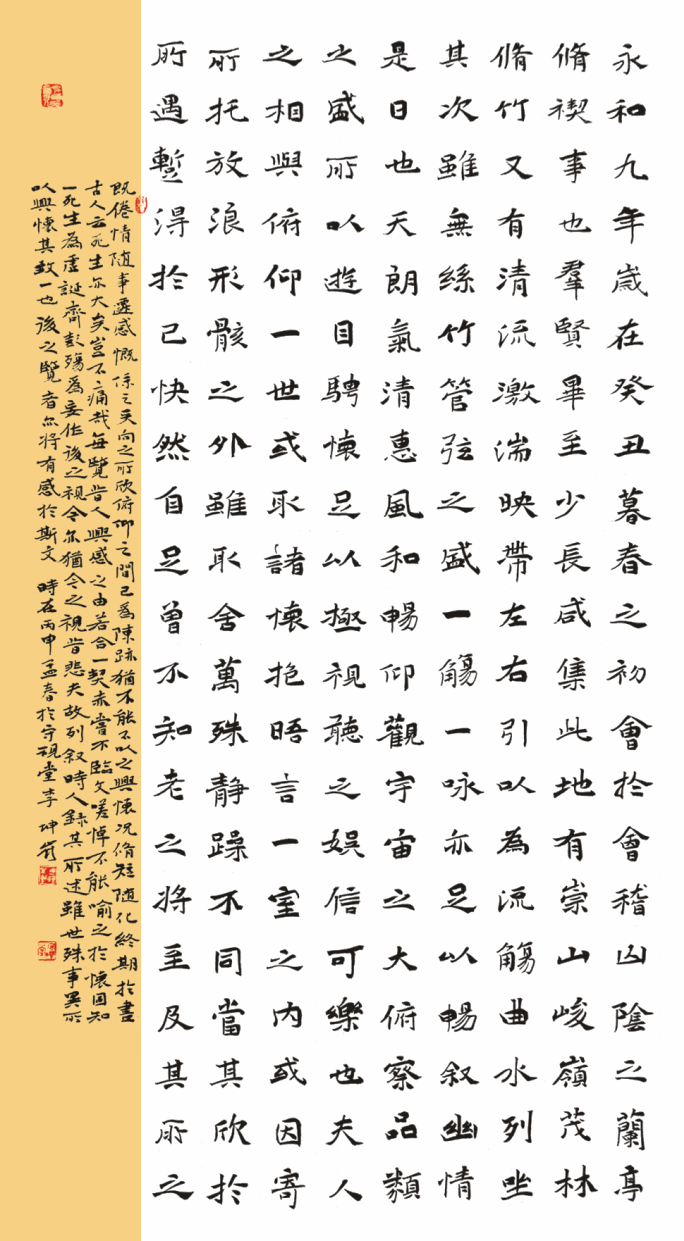 永和九年歲在癸丑暮春之初會於會稽山陰之蘭亭
脩禊事也羣賢畢至少長咸集此地有崇山峻嶺茂林
脩竹又有清流激湍映帶左右引以為流觴曲水列坐
其次雖無絲竹管弦之盛一觴一咏亦足以暢叙幽情
是日也天朗氣清惠風和暢仰觀宇宙之大俯察品類
之盛所以遊目騁懷足以極視聽之娛信可樂也夫人
之相與俯仰一世或取諸懷抱晤言一室之內或因寄
所托放浪形骸之外雖取舍萬殊静躁不同當其欣於
所遇暫得於己快然自足曾不知老之將至及其所之
既倦情随事遷感慨係之矣向之所欣俯仰之間已為陳跡猶不能不以之興懷況脩短随化終期於盡
古人云死生亦大矣豈不痛哉每覽昔人興感之由若合一契亦嘗不臨文嗟悼不能喻之於懷固知
一死生為虛誕齊彭殤為妄作後之視今亦猶今之視昔悲夫故列叙時人錄其所述雖世殊事異所
以興懷其致一也後之覽者亦將有感於斯文 時在丙申孟春於守硯堂李坤